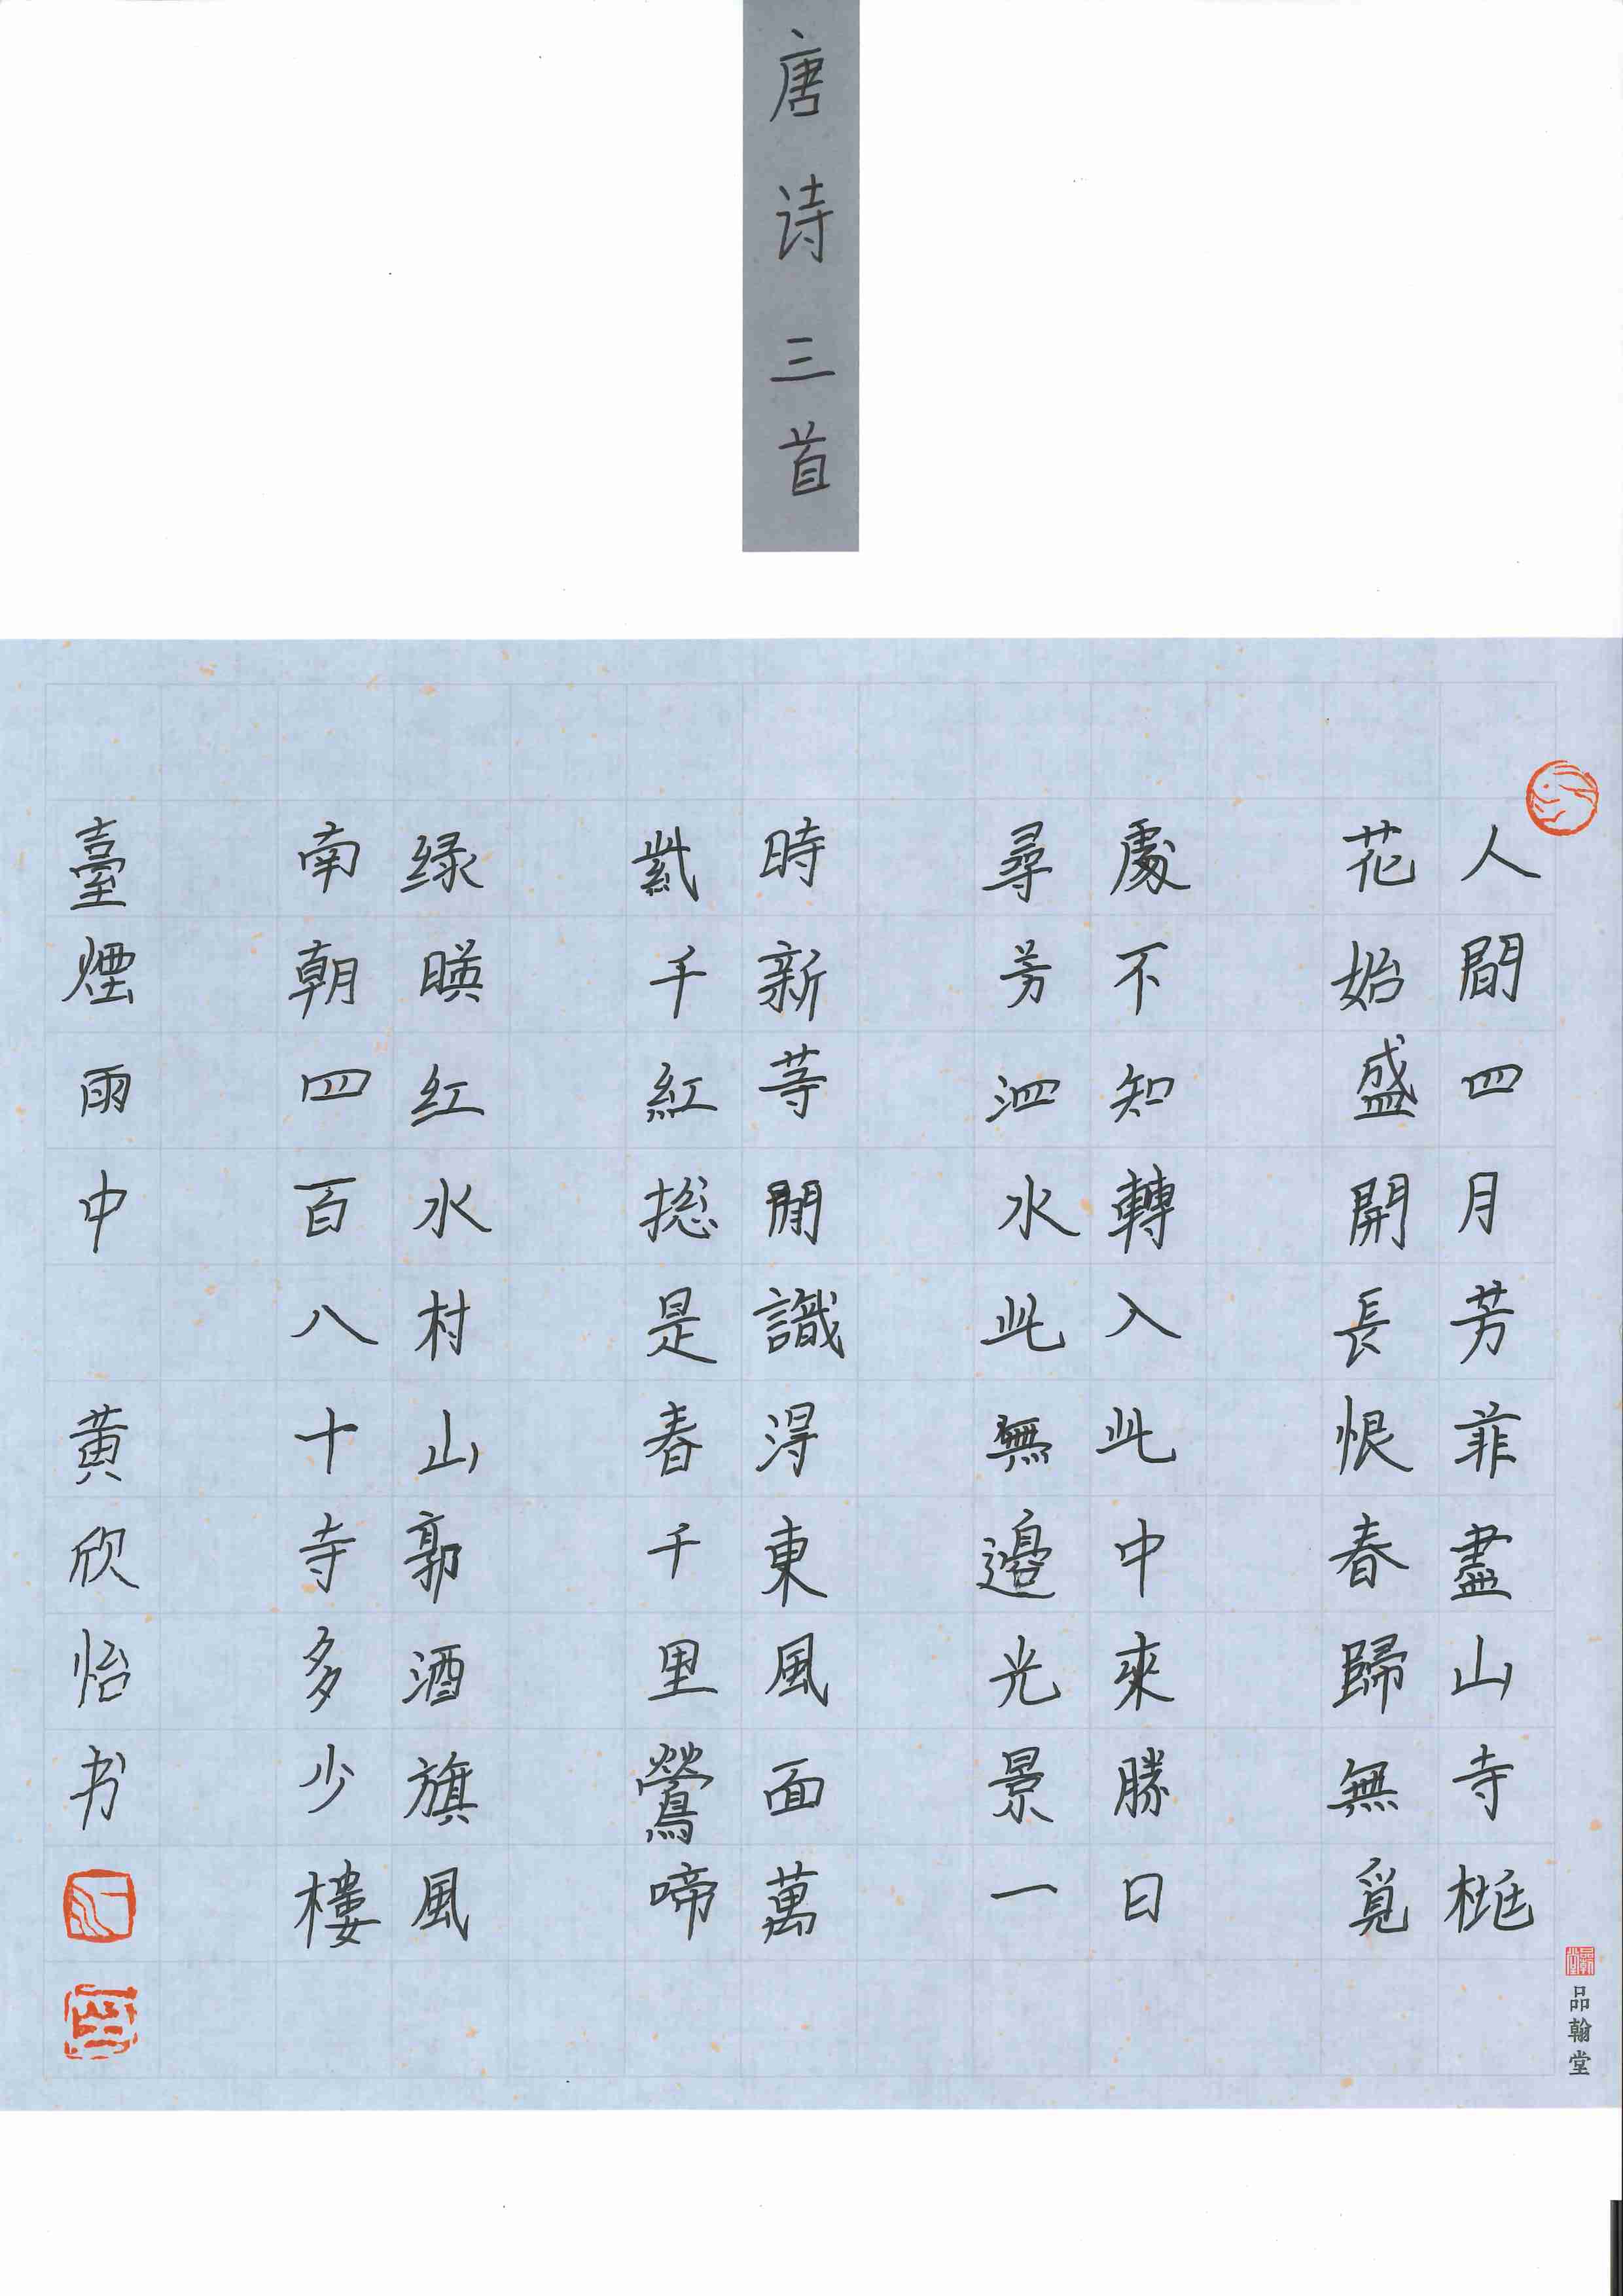 唐诗三首
人間四月芳菲盡山寺桃
花始盛開長恨春歸無覓
處不知轉入此中來勝日
尋芳泗水此無邊光景一
時新等閒識得東風面萬
紫千紅揔是春千里鶯啼
绿暎红水村山郭酒旗風
南朝四百八十寺多少樓
臺煙雨中 黄欣怡书
品翰堂